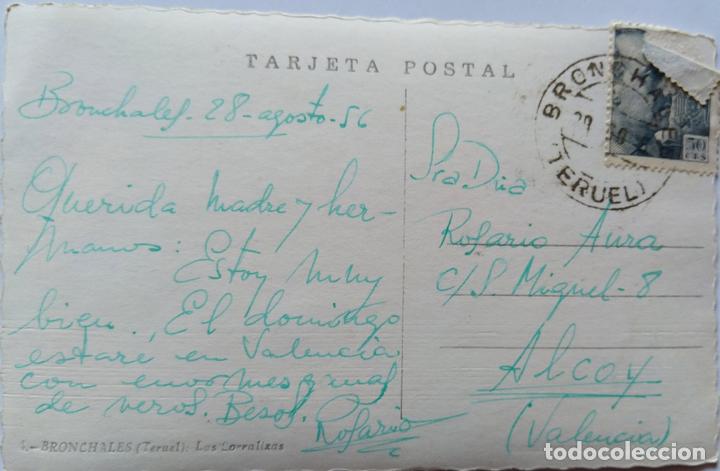 TARJETA POSTAL
Bronchales-28-agosto-56
Querida Madre y her-
manos: Estoy muy
bien. El domingo
estaré en Valencia
con enormes ganas
de veros. Besos. Rosario
4.- BRONCHALES (Teruel): Las Corralizas
Sra Dña
Rosario Aura
c/ S. Miguel-8
Alcoy
(Valencia)
BRONCHALES
(TERUEL)
50
CTS
todocoleccion.net